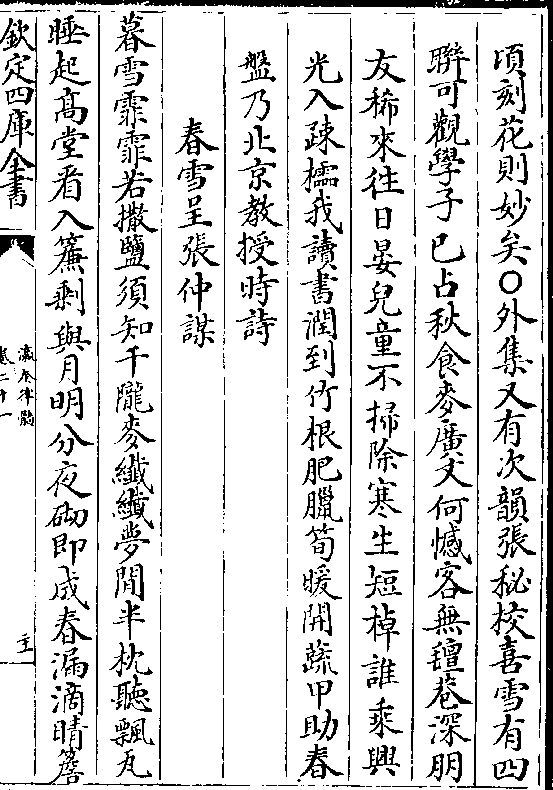 頃刻花則妙矣○外集又有次韻張秘校喜雪有四
聨可觀學子已占秋食麥廣文何憾客無氊巷深朋
友稀來往日晏兒童不掃除寒生短棹誰乘興
光入疎櫺我讀書潤到竹根肥臘筍暖開蔬甲助春
盤乃北京教授時詩
春雪呈張仲謀
暮雪霏霏若撒鹽須知千隴麥纎纎夢閒半枕聽飄瓦
睡起髙堂看入簾剰與月明分夜砌即成春漏滴晴簷
欽定四庫全書
瀛奎律髓
卷二十一